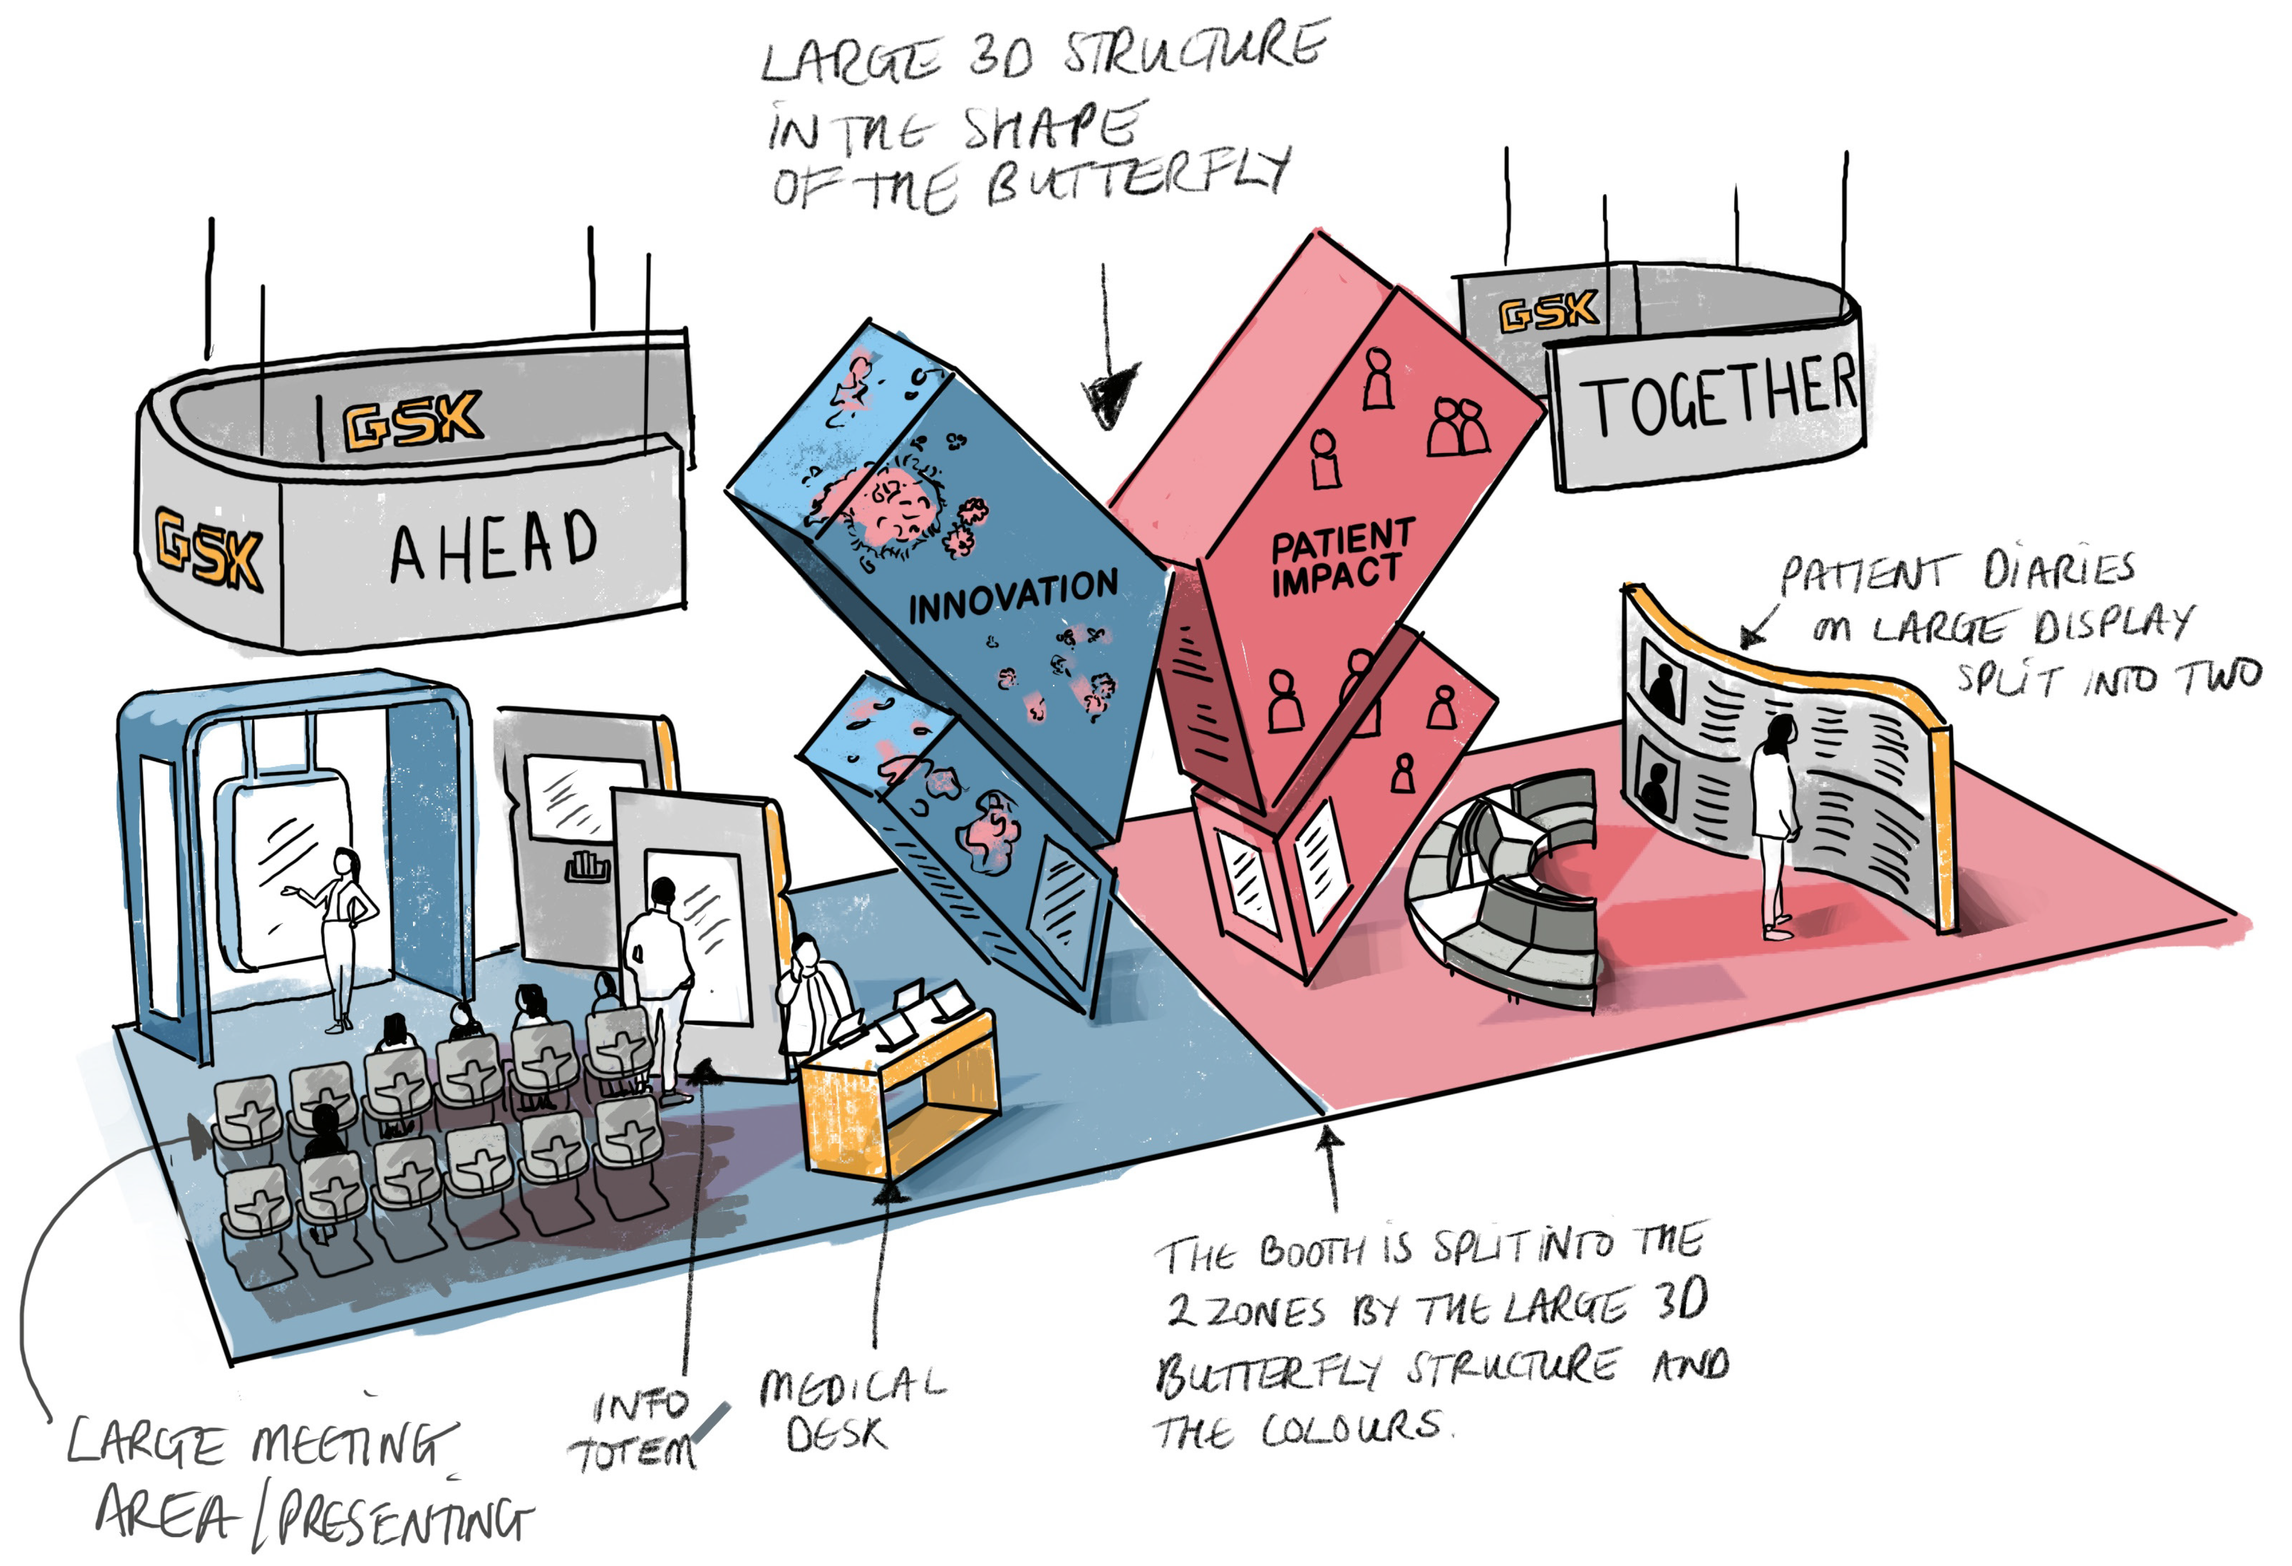 LARGE 3D STRUCTURE
IN THE SHAPE
OF THE BUTTERFLY
GSK
GSK
AHEAD
GSK
TOGETHER
INNOVATION
PATIENT
IMPACT
PATIENT DIARIES
ON LARGE DISPLAY
SPLIT INTO TWO
THE BOOTH IS SPLIT INTO THE
2 ZONES BY THE LARGE 3D
BUTTERFLY STRUCTURE AND
THE COLOURS.
INFO
TOTEM
MEDICAL
DESK
LARGE MEETING
AREA / PRESENTING